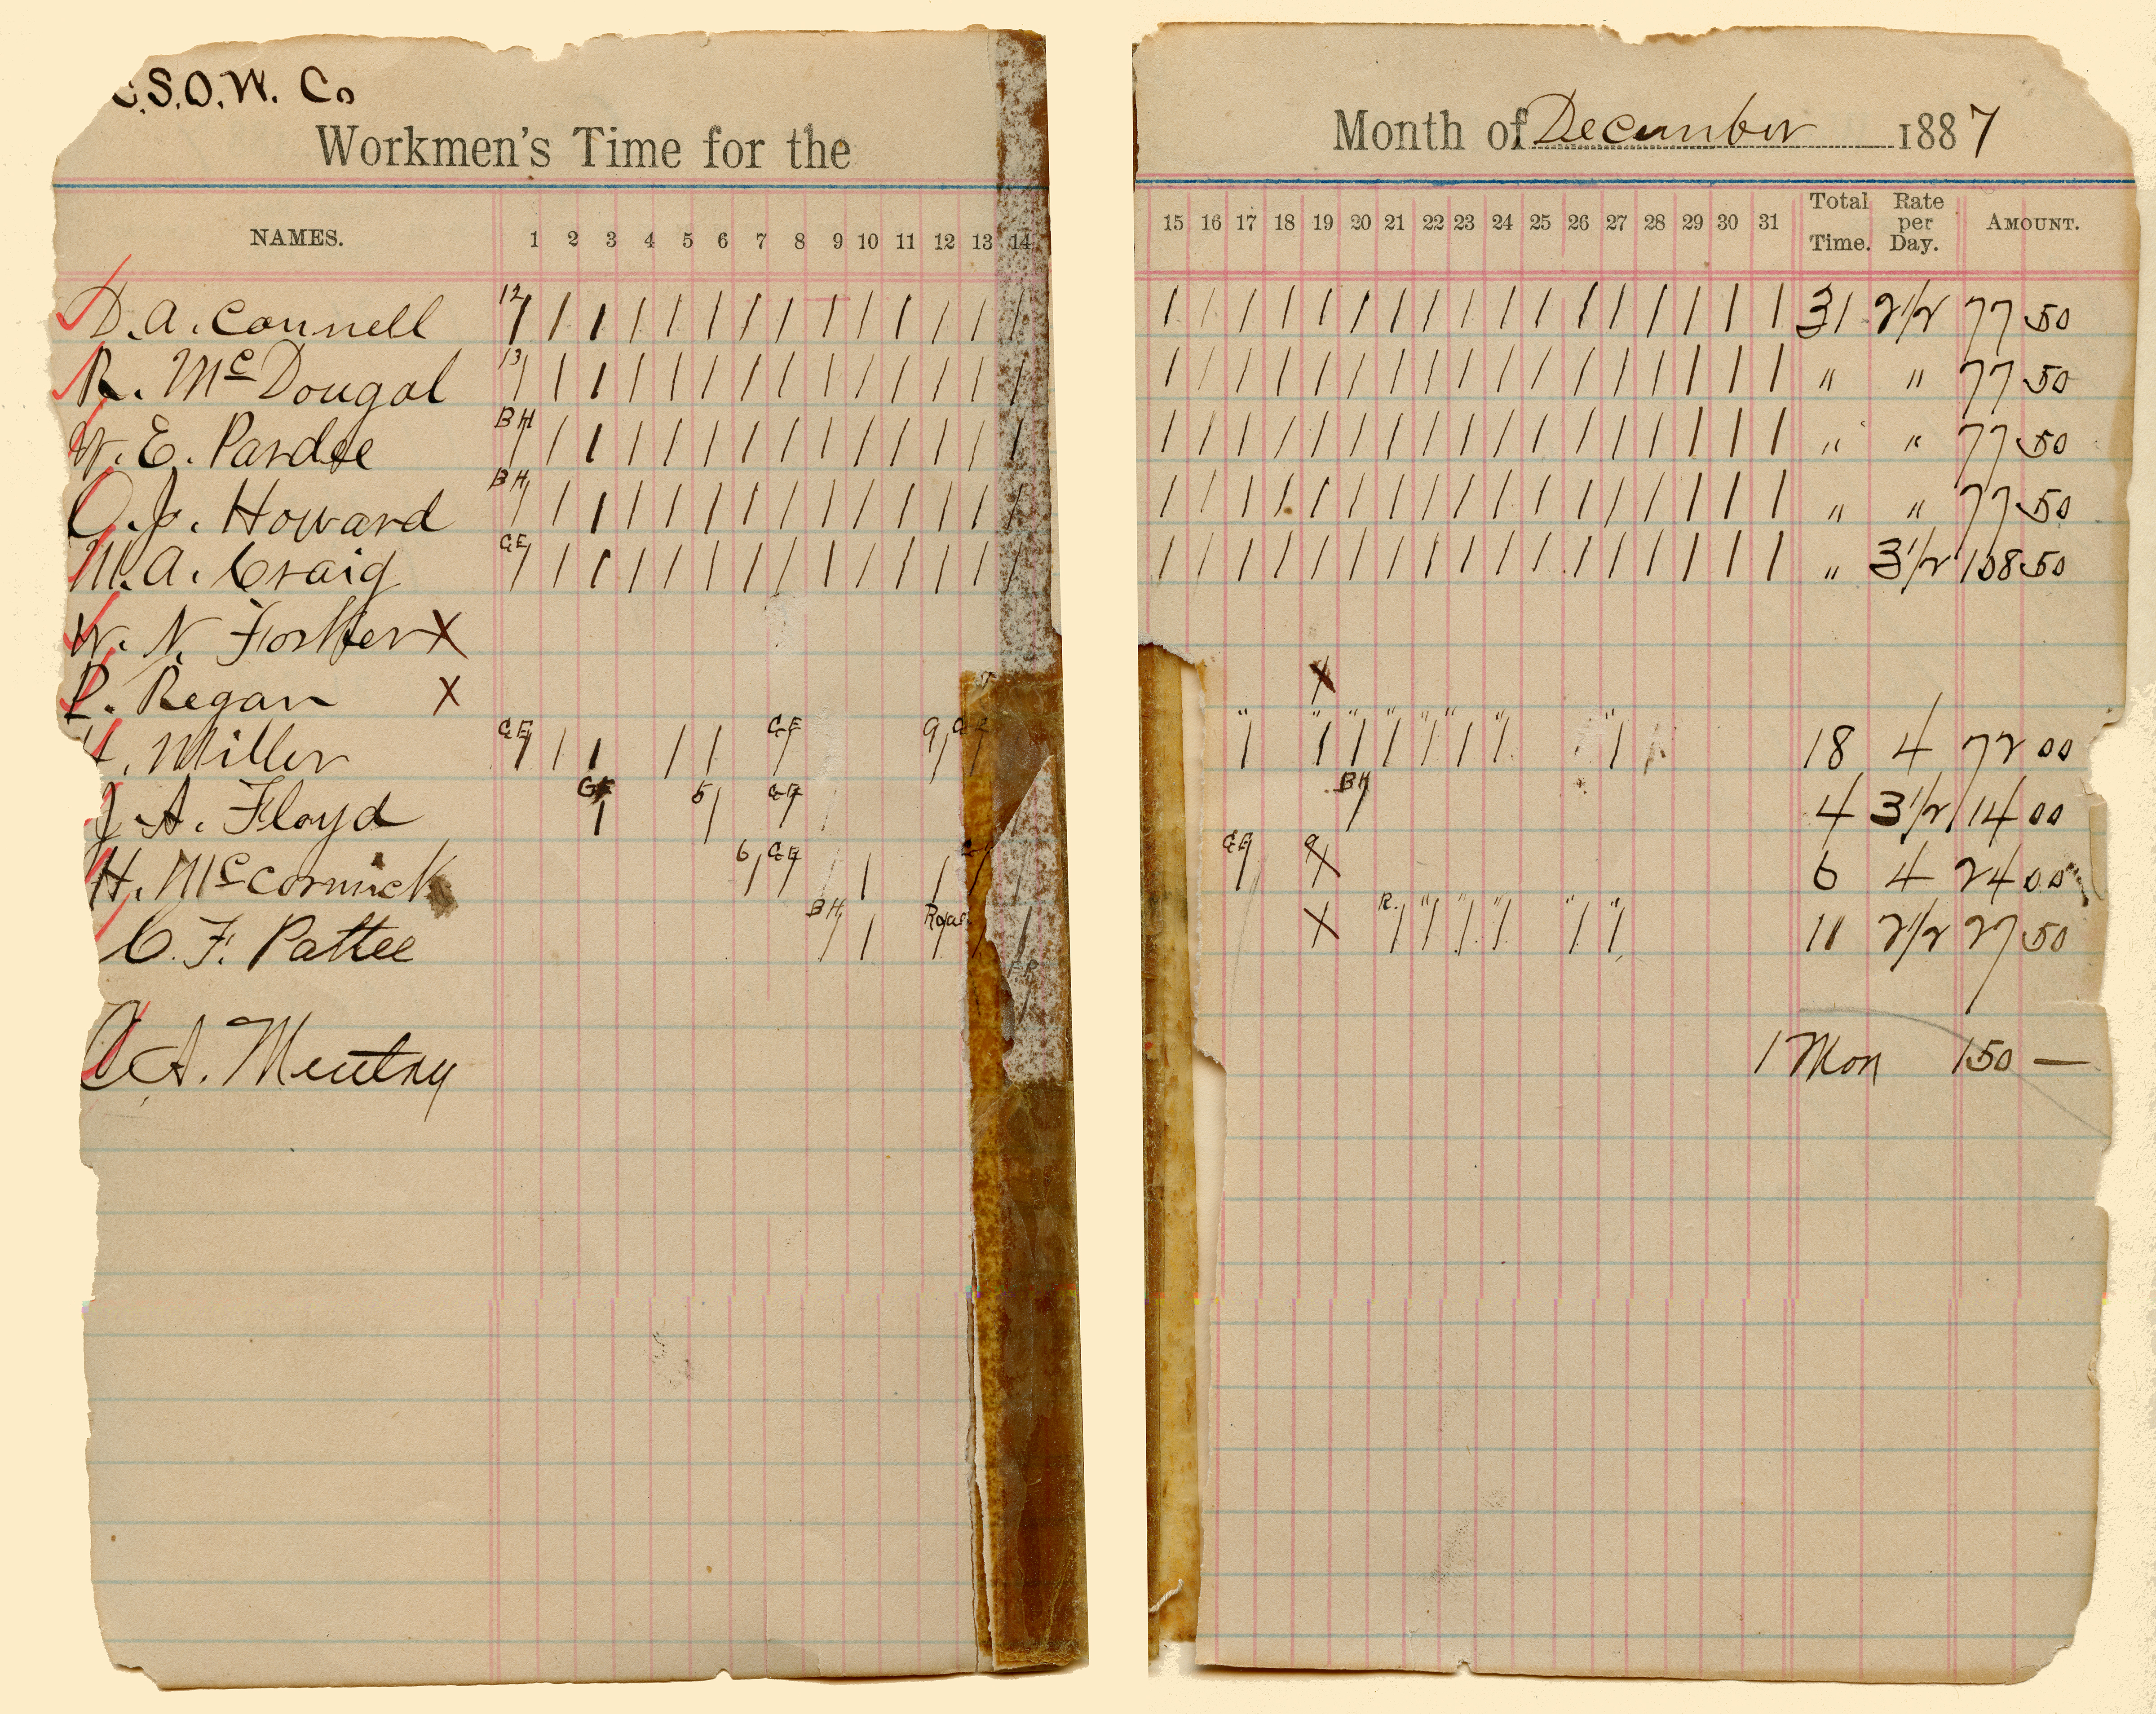 C.S.O.W. Co
Workmen's Time for the Month of December 1887
NAMES. 1 2 3 4 5 6 7 8 9 10 11 12 13 14 15 16 17 18 19 20 21 22 23 24 25 26 27 28 29 30 31 Total Time. Rate per Day. AMOUNT.
D. A. Connell 12 / / / / / / / / / / / / / / / / / / / / / / / / / / / / / / / 31 2 1/2 77 50
R. McDougal 13 / / / / / / / / / / / / / / / / / / / / / / / / / / / / / / / " " 77 50
W. E. Pardee BH / / / / / / / / / / / / / / / / / / / / / / / / / / / / / / / " " 77 50
O. J. Howard BH / / / / / / / / / / / / / / / / / / / / / / / / / / / / / / / " " 77 50
M. A. Craig GE / / / / / / / / / / / / / / / / / / / / / / / / / / / / / / / " 3 1/2 108 50
W. N. Forker X
P. Regan X X
Miller GE / / / / / GE / 9 / / "/ / "/ "/ "/ "/ "/ "/ 18 4 72 00
J. A. Floyd GE / 5 / GE / BH / 4 3 1/2 14 00
H. McCormick 6 / GE / / / / GE / 9 X 6 4 24 00
C. F. Pattee BH / / / X R. / "/ "/ "/ "/ "/ 11 2 1/2 27 50
C. A. Mentry 1 Mon 150 —